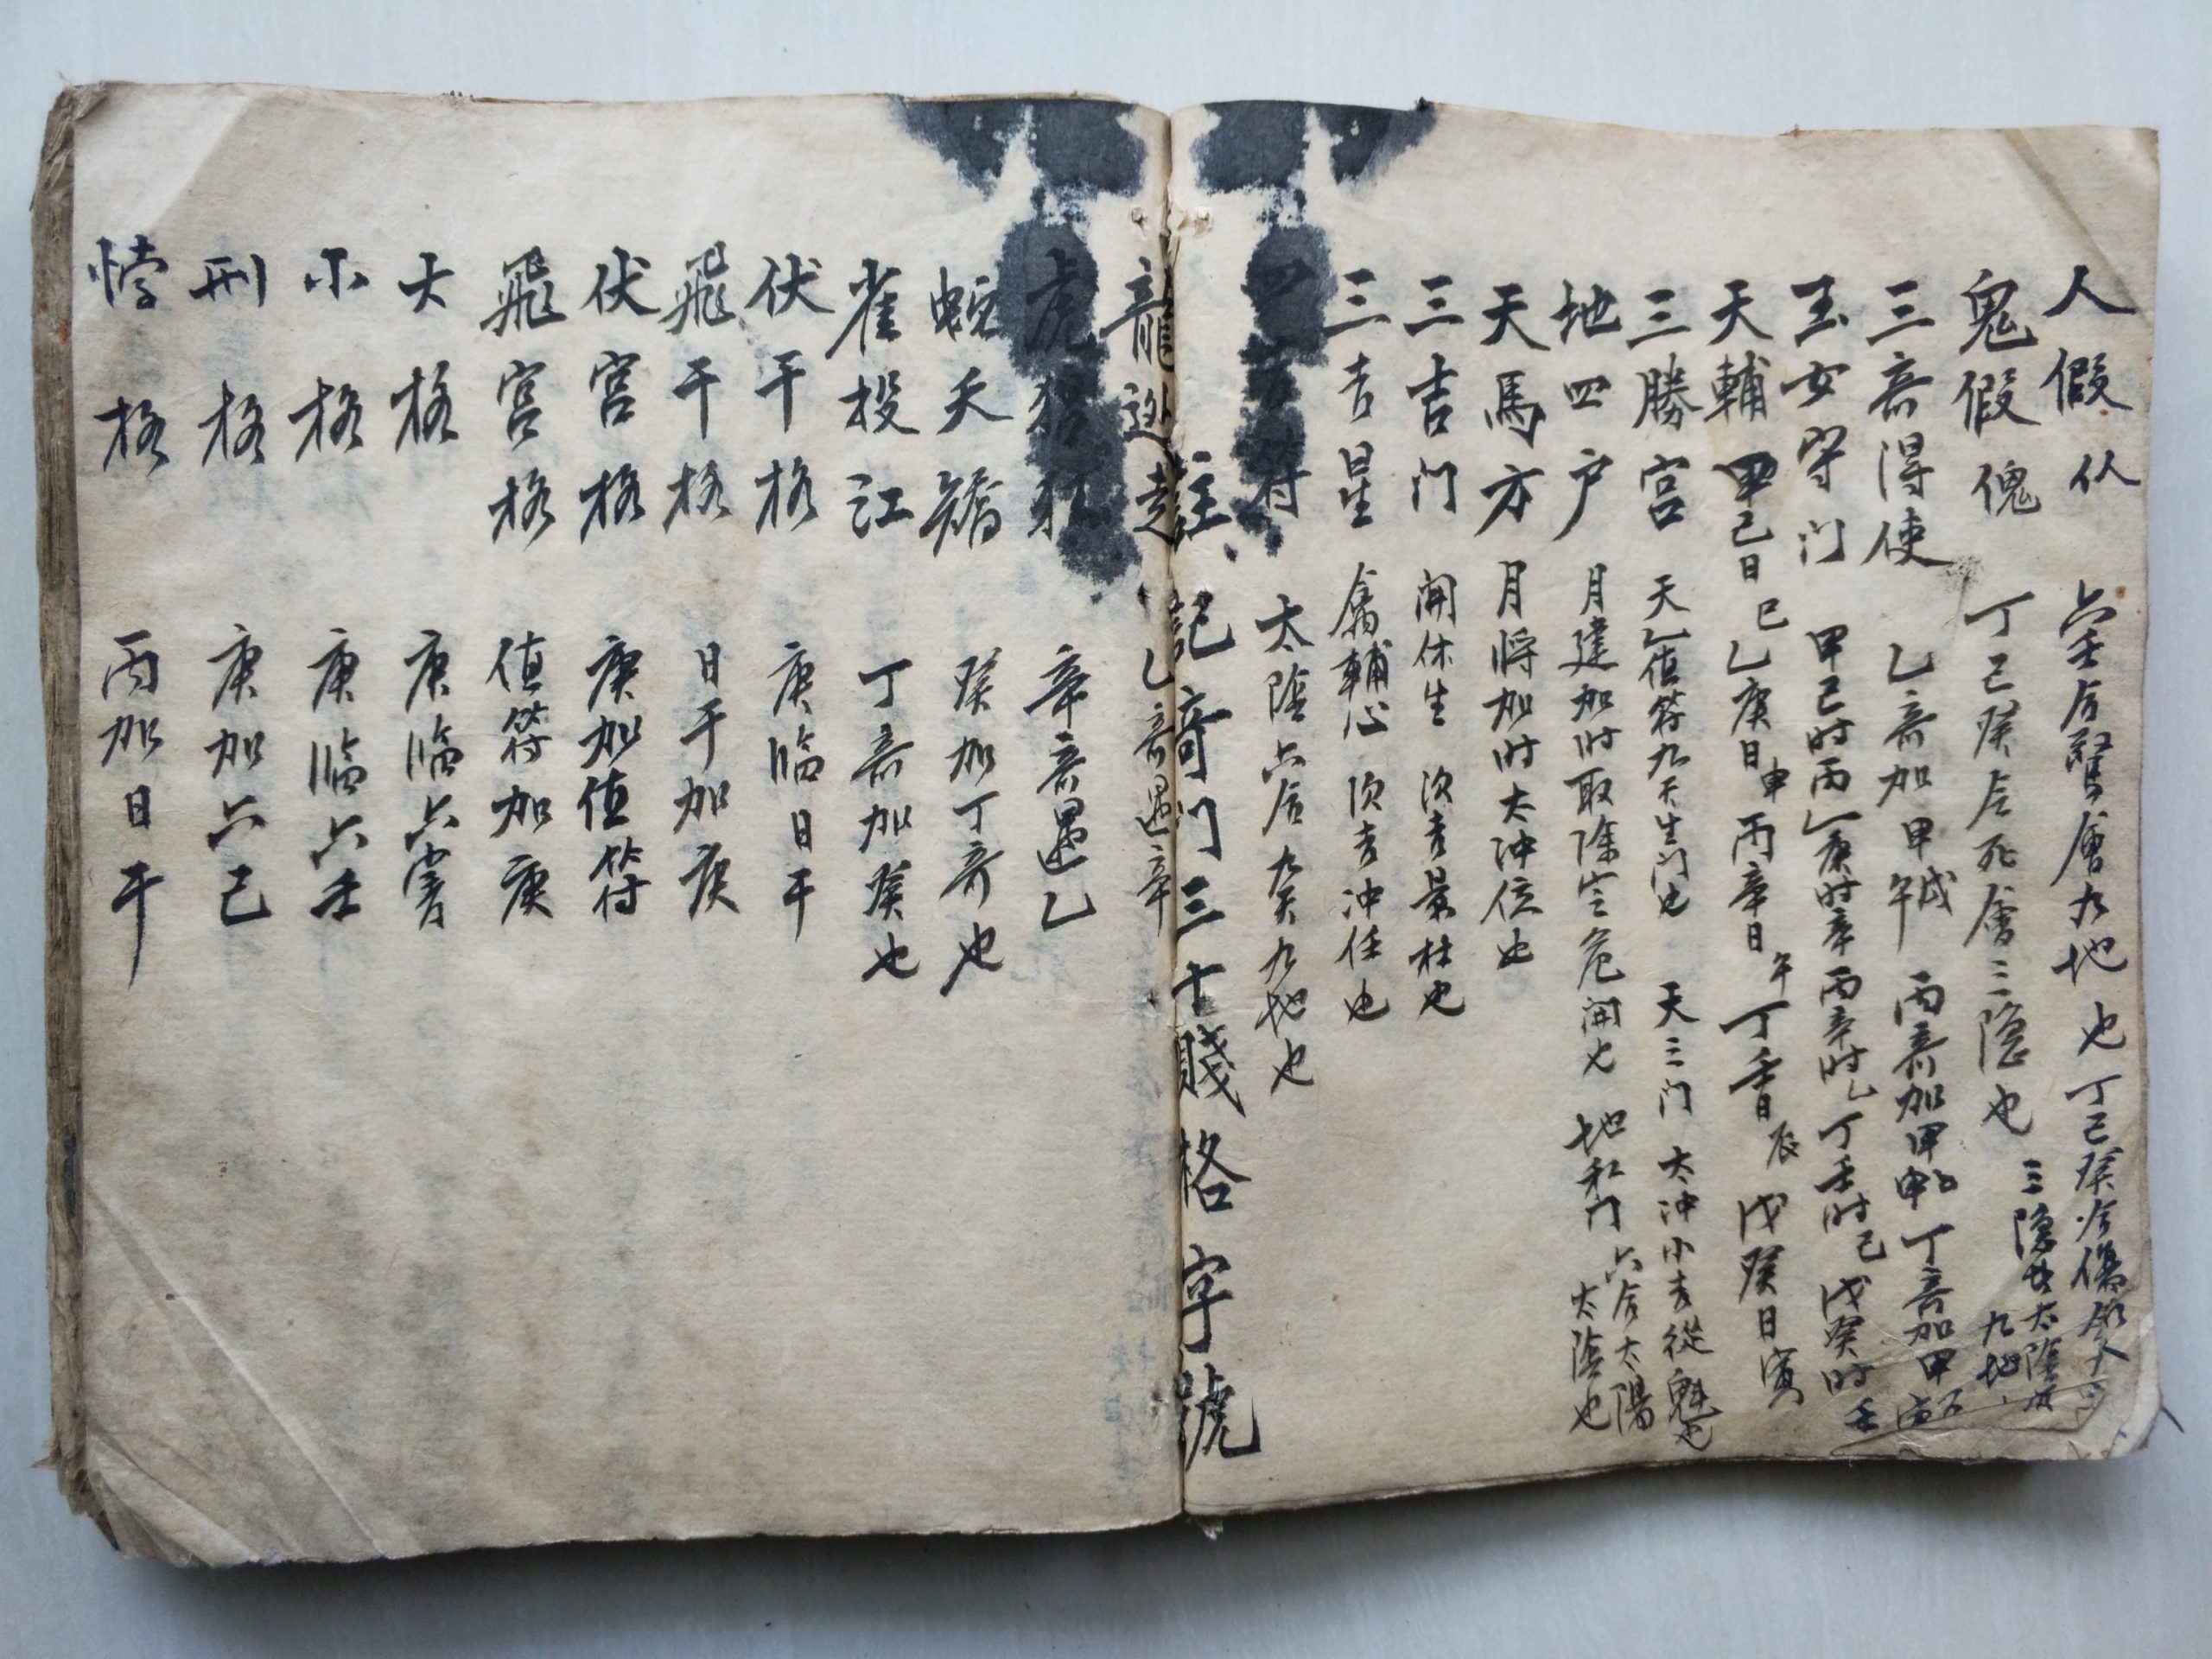 人假仫 六壬合驚會九地也丁己癸合傷
鬼假傀 丁己癸合死會三隐也 三隐出太陰 九地
三奇得使 乙奇加甲戌午 丙奇加甲申子 丁奇加甲
玉女守门 甲己时丙 乙庚时辛 丙辛时乙 丁壬时己 戊癸时壬
天輔 甲己日巳 乙庚日申 丙辛日午 丁壬日辰 戊癸日寅
三勝宫 天乙值符九天生门也 天三门 太冲小吉從魁也
地四户 月建加时取除定危開也 地私门 六合太陽太陰也
天馬方 月將加时太冲位也
三吉门 開休生 次吉景杜也
三吉星 禽輔心 次吉冲任也
符 太陰六合癸九地也
註記奇门三十賤格字號
龍逃走 乙奇遇辛
虎猖狂 辛奇遇乙
蛇夭矯 癸加丁奇也
雀投江 丁奇加癸也
伏干格 庚临日干
飛干格 日干加庚
伏宫格 庚加值符
飛宫格 值符加庚
大格 庚临六
小格 庚临六壬
刑格 庚加六己
悖格 丙加日干